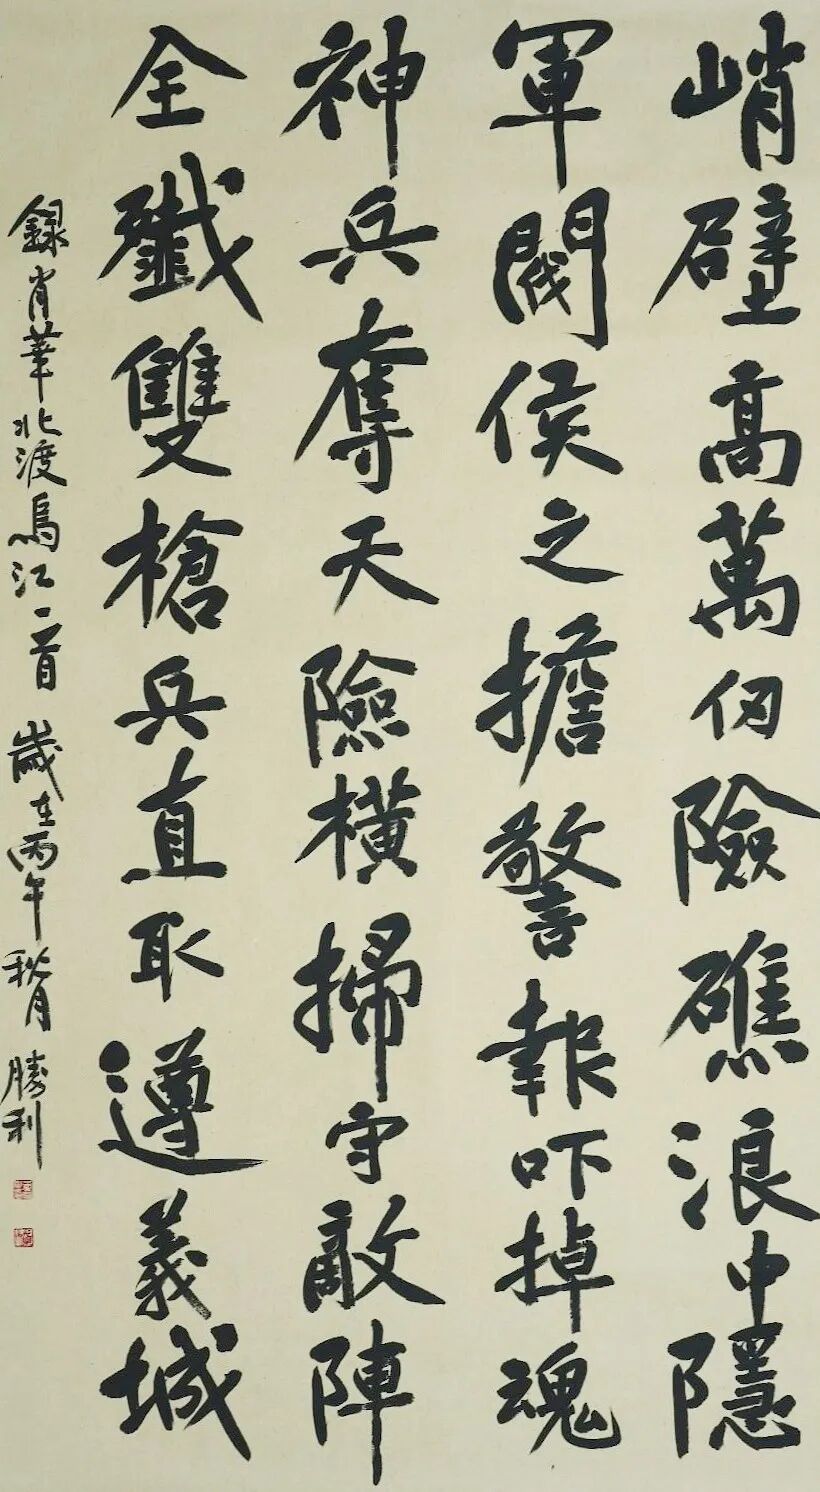 峭壁高萬仞險礁浪中隱
軍閥侯之擔警報吓掉魂
神兵奪天險橫掃守敵陣
全殲雙槍兵直取遵義城
錄肖華北渡烏江一首 歲在丙午秋月 勝利